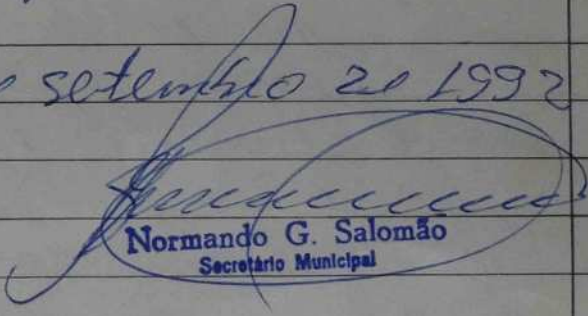 setembro de 1992
Normando G. Salomão
Secretário Municipal